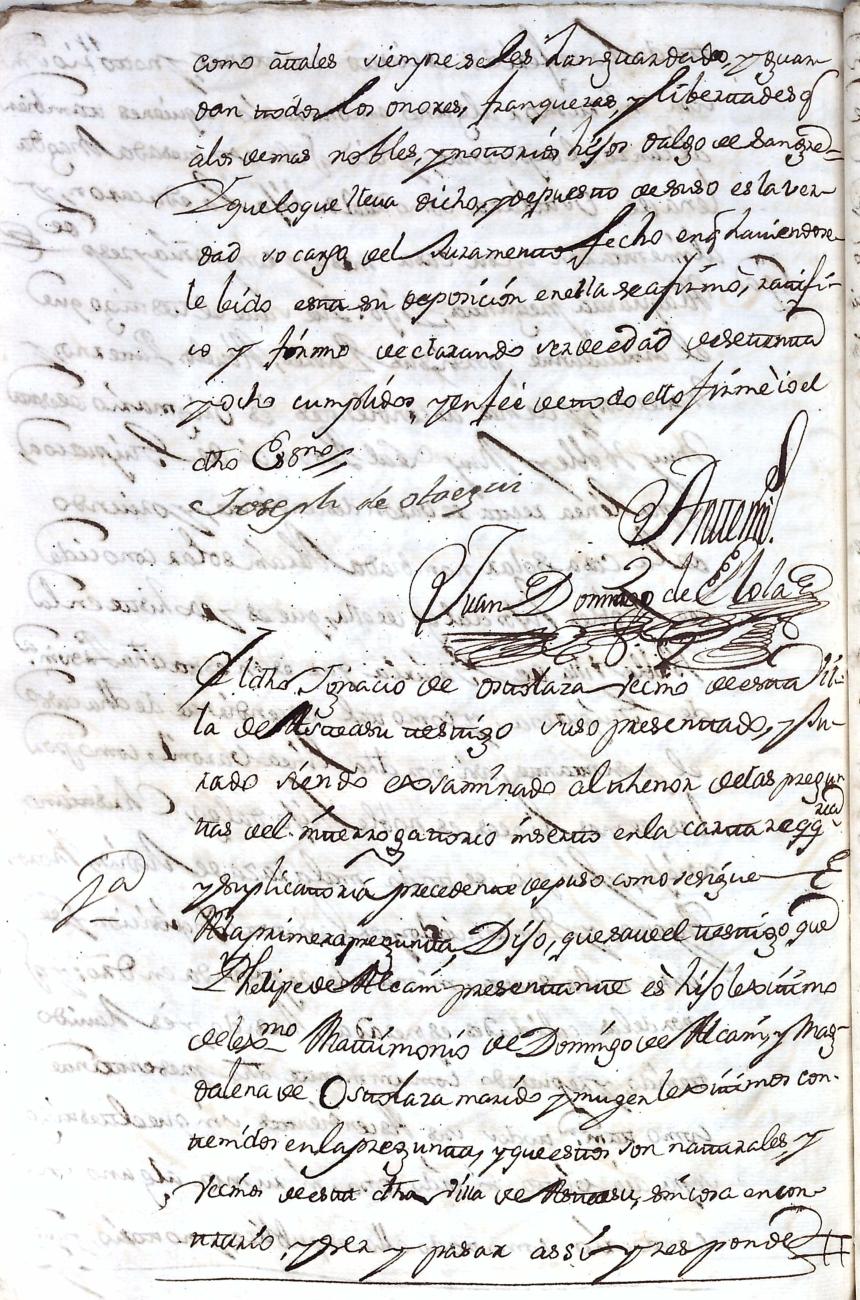 como átales siempre seles han guardado, y guar-
dan ttodos los onores, franquezas, y libertades q
álos demas nobles, y nottorios hijos dalgo de Sangre =
Yqueloque lleva dicho, y depuestto desuso es la ver-
dad so cargo del Juramentto fecho en q haviendose-
le leido estta su deposición enella se afirmó, rattifi-
co y firmo declarando ser de edad de settentta
y ocho cumplidos, y en feé de ttodo ello firmè io el
dho Essno
Joseph de Olaegui
Antte mi
Juan Domingo de Elola
El dho Ignacio de Osttolaza vecino de estta Vi-
lla de Astteasu testtigo suso presenttado, y Ju-
rado siendo exsaminado al thenor delas pregun-
ttas del intterrogattorio insertto en la cartta reqqria
y suplicattoria precedentte depuso como se sigue
1a
A la primera pregunta, Dijo, que save el testtigo que
Phelipe de Alcain presenttantte és hijo lexittimo
de lexmo Mattrimonio de Domingo de Alcain, y Mag-
dalena de Osttolaza marido y muger lexittimos con-
ttenidos en la pregunta, y que esttos son natturales, y
vecinos de estta dha villa de Astteasu, sin cosa en con-
ttrario, y ser y pasar assi y responde